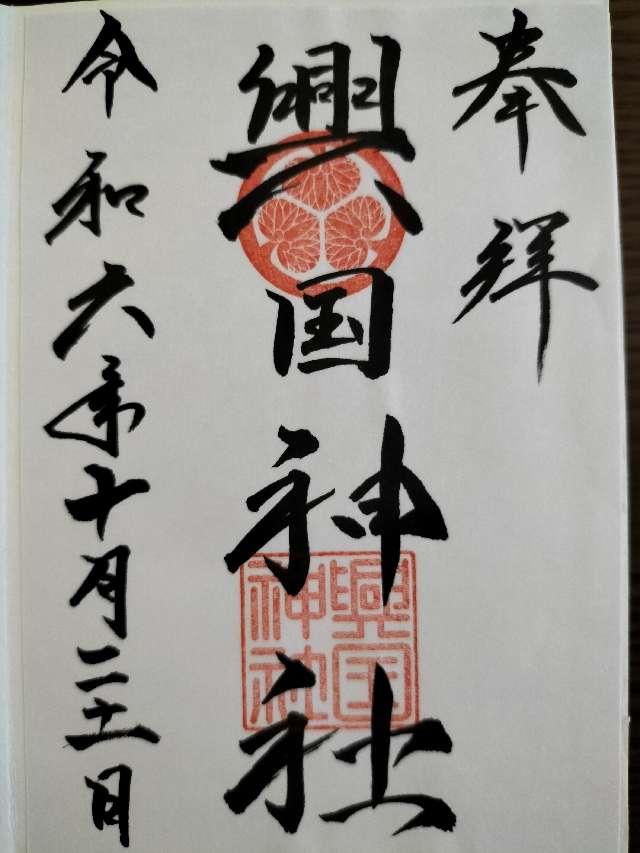 奉拝
興国神社
興国神社
令和六年十月二十一日